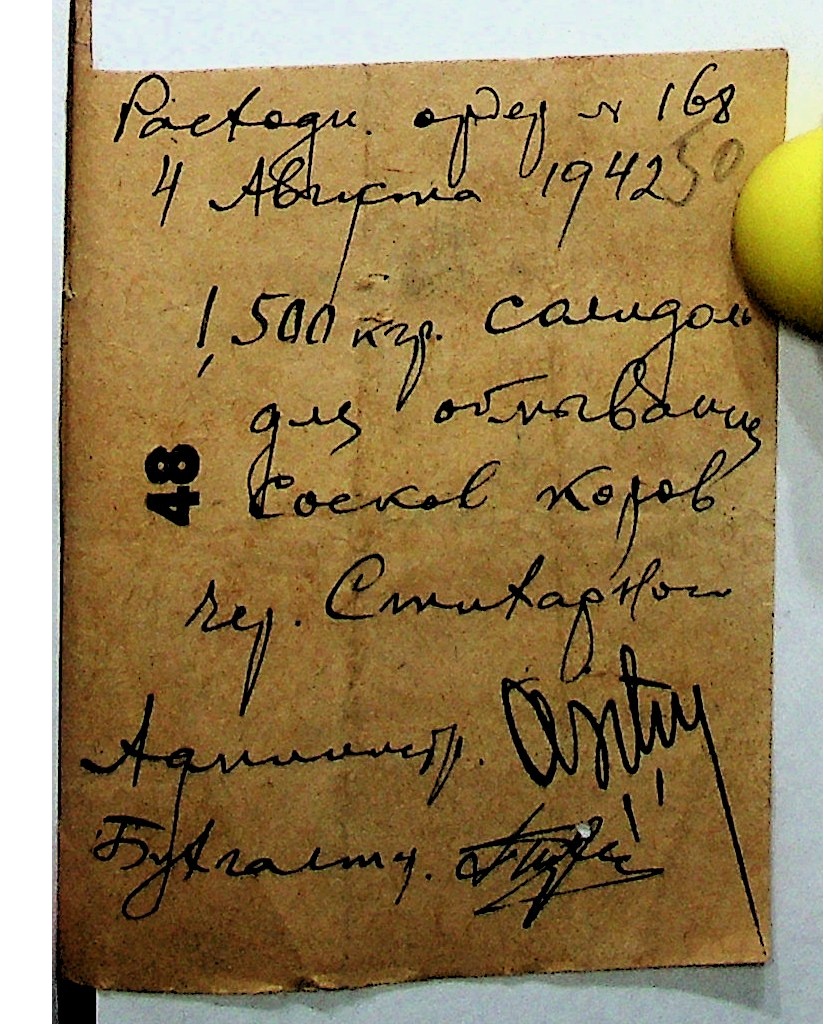 Расходн. ордер N 168
4 Августа 1942 50
1,500 кгр. солидоль
для обмывания
48
Сосков коров.
чер. Стихарной
Администр.
Бухгалтер.